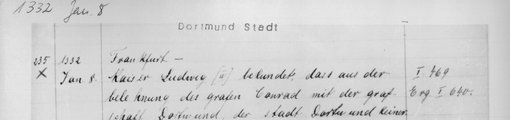 1332 Jan. 8
Dortmund Stadt
235 1332 Frankfurt —
X Jan 8. Kaiser Ludwig [iv] bekundet, dass aus der I 469
belehnung des grafen Conrad mit der graf- Erg I 640.
schaft Dortmund, der stadt Dortmund keiner